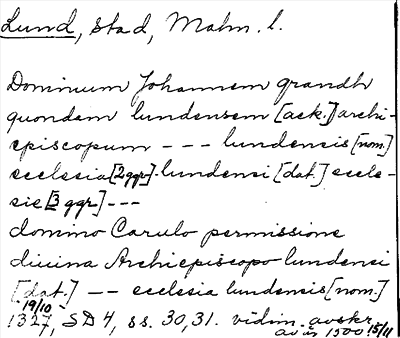 Lund, stad, Malm. l.
Dominum Johannem grandh
quondam lundensem [ack.] archi-
episcopum - - - lundensis [nom.]
ecclesia [2 ggr] - lundensi [dat.] eccle-
sie [3 ggr] - - -
domino Carulo permissione
diuina Archiepiscopo lundensi
[dat.] - - ecclesia lundensis [nom.]
19/10
1327, SD 4, ss. 30, 31. vidim. avskr.
av år 1500 15/11